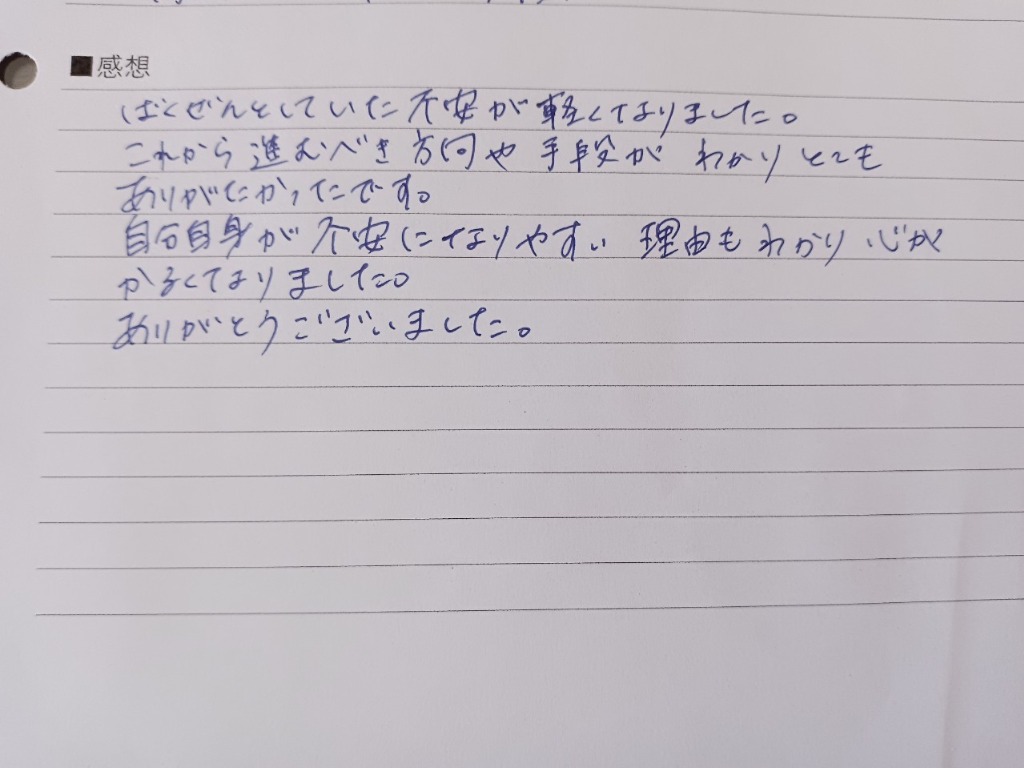 ■感想
ばくぜんとしていた不安が軽くなりました。
これから進むべき方向や手段がわかりとても
ありがたかったです。
自分自身が不安になりやすい理由もわかり心が
かるくなりました。
ありがとうございました。